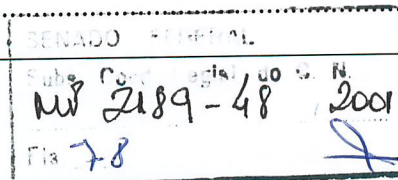 SENADO FEDERAL
Subs. Coord. Legisl. do C. N.
MV 2189-48 2001
Fls 78